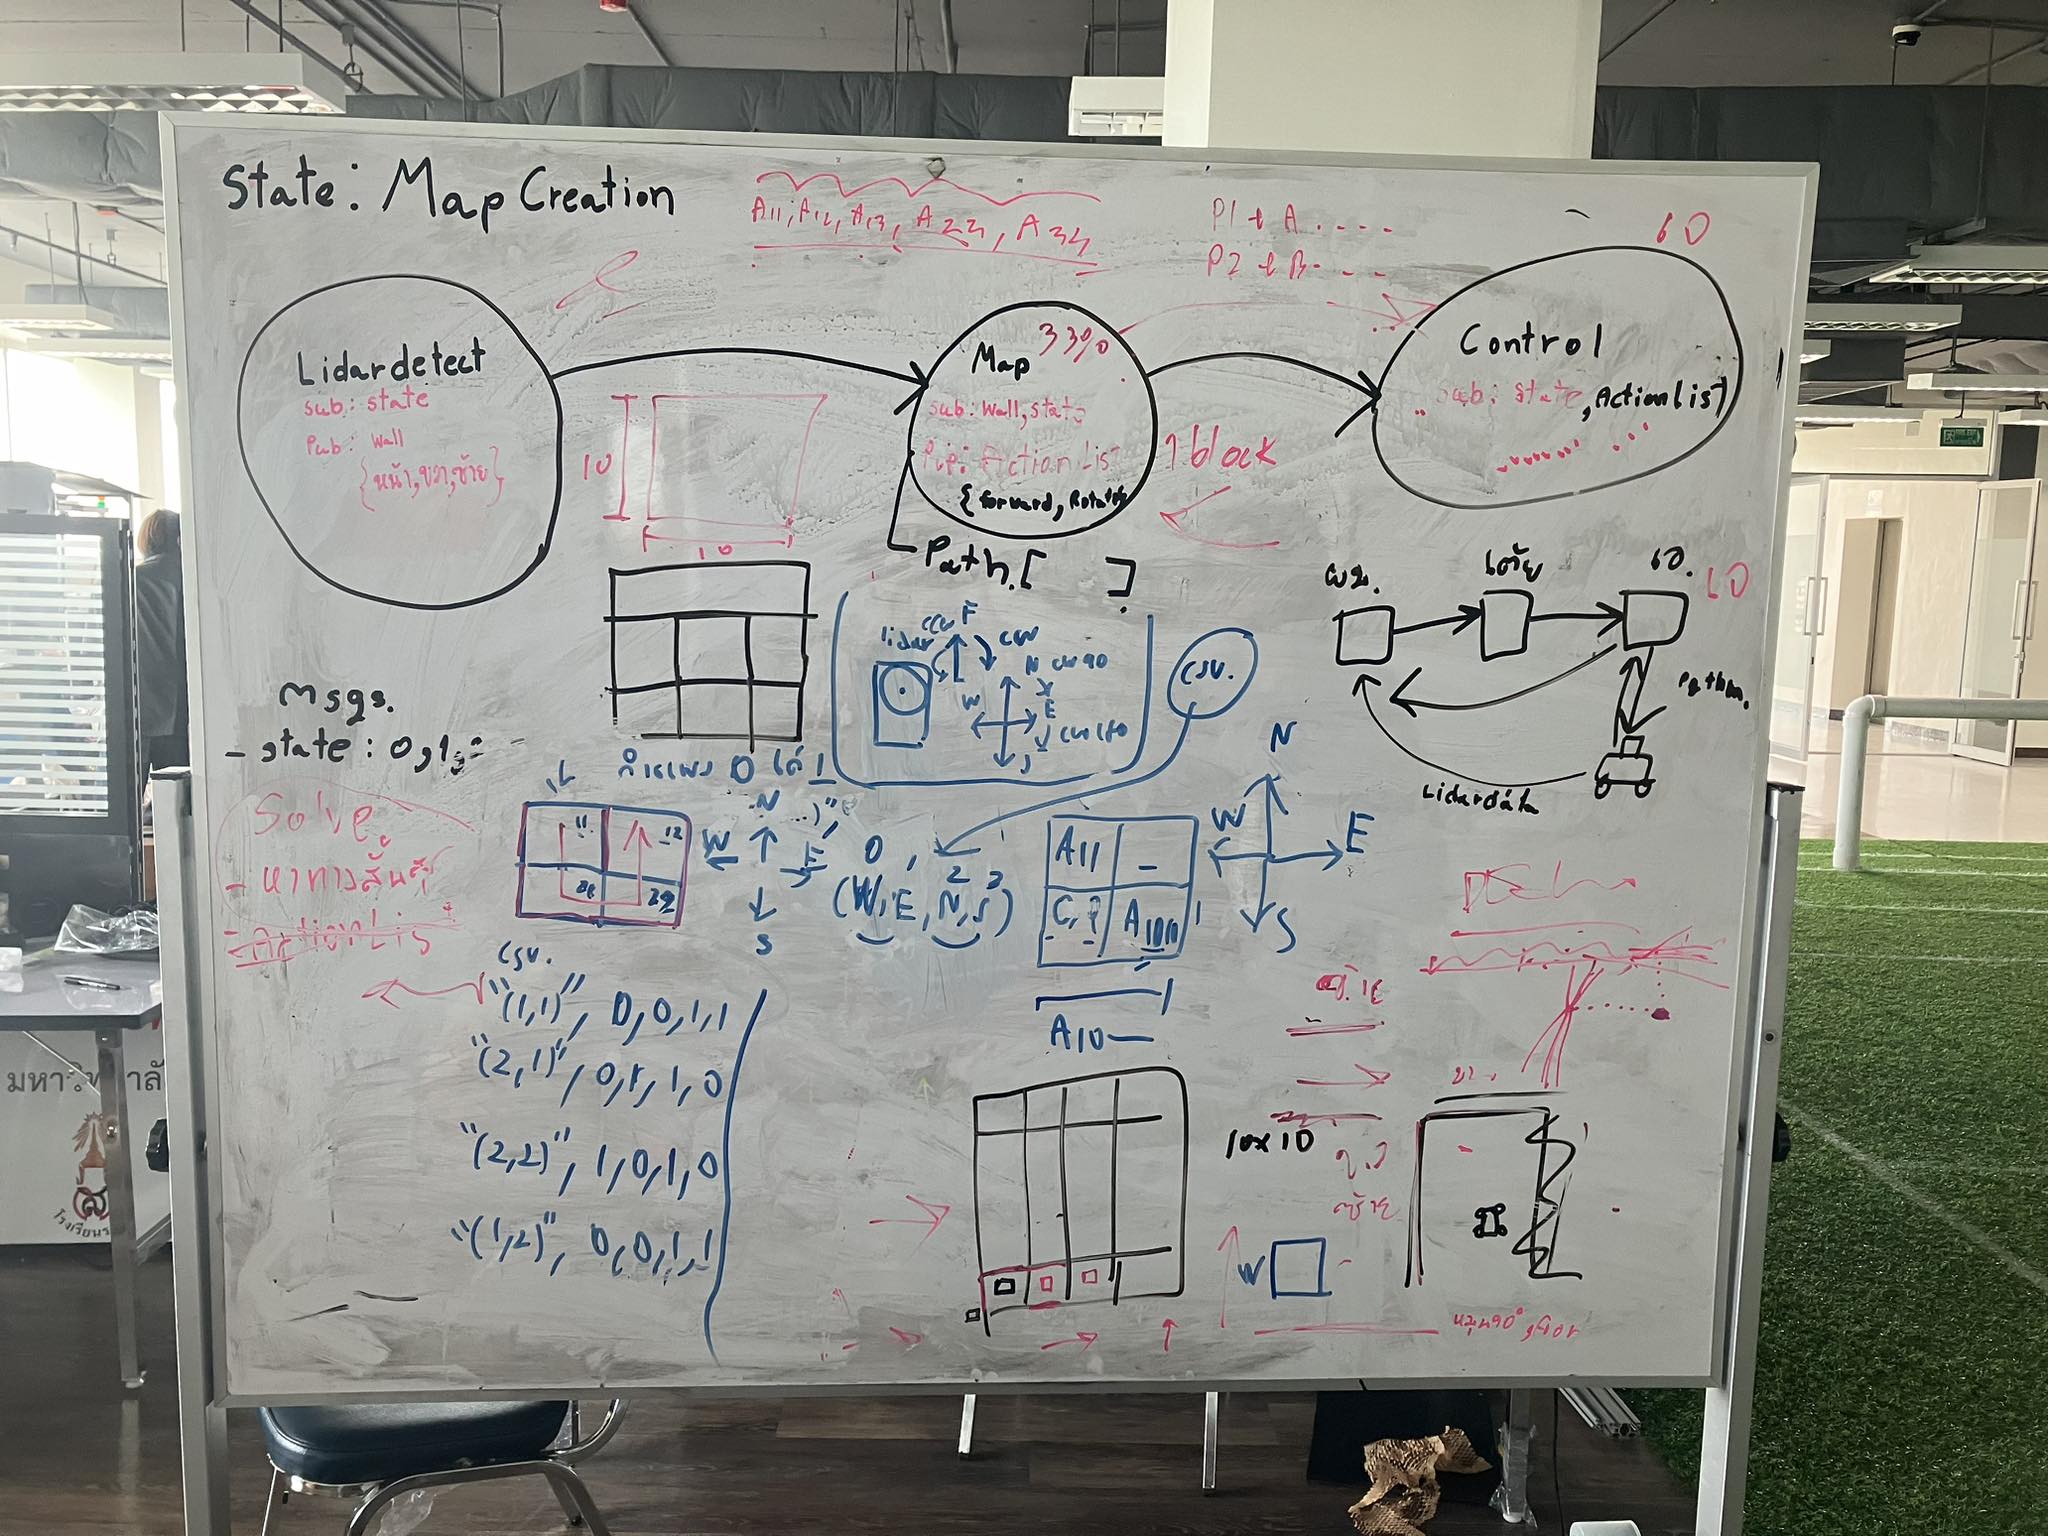 State: Map Creation
A11, A12, A13, A23, A33
P1 + A ....
P2 + B ...
Lidar detect
sub: state
Pub: wall
{หน้า, ขวา, ซ้าย}
10
10
Map
33%
sub: wall, state
Action List
{forward, Rotate
Path.[ ]
1 block
Control
sub: state, Action List
เต้ย
Python.
Lidar data
Msgs.
- state: 0,1,2
Solve
- หาทางสั้นสุด
- Action Lis
กำแพง 0 ได้ 1
lidar
ccw F
cw
N cw 90
W
E
S
csv.
11
12
21
22
N
W
E
S
0,
2 3
(W, E, N, S)
A11
-
A10
N
W
E
S
csv.
"(1,1)", 0,0,1,1
"(2,1)", 0,1,1,0
"(2,2)", 1,0,1,0
"(1,2)", 0,0,1,1
10x10
ซ้าย
W
หมุน 90°
มหาวิทยาลั